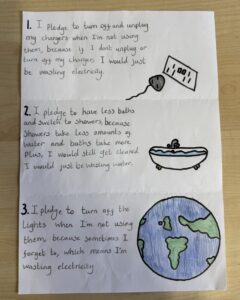 1. I Pledge to turn off and unplug
my chargers when I'm not using
them, because if I don't unplug or
turn off my chargers I would just
be wasting electricity.
2. I pledge to have less baths
and switch to showers, because
showers take less amounts of
water and baths take more.
Plus, I would still get cleaned
I would just be wasting water.
3. I pledge to turn off the
lights when I'm not using
them, because sometimes I
forget to, which means I'm
wasting electricity